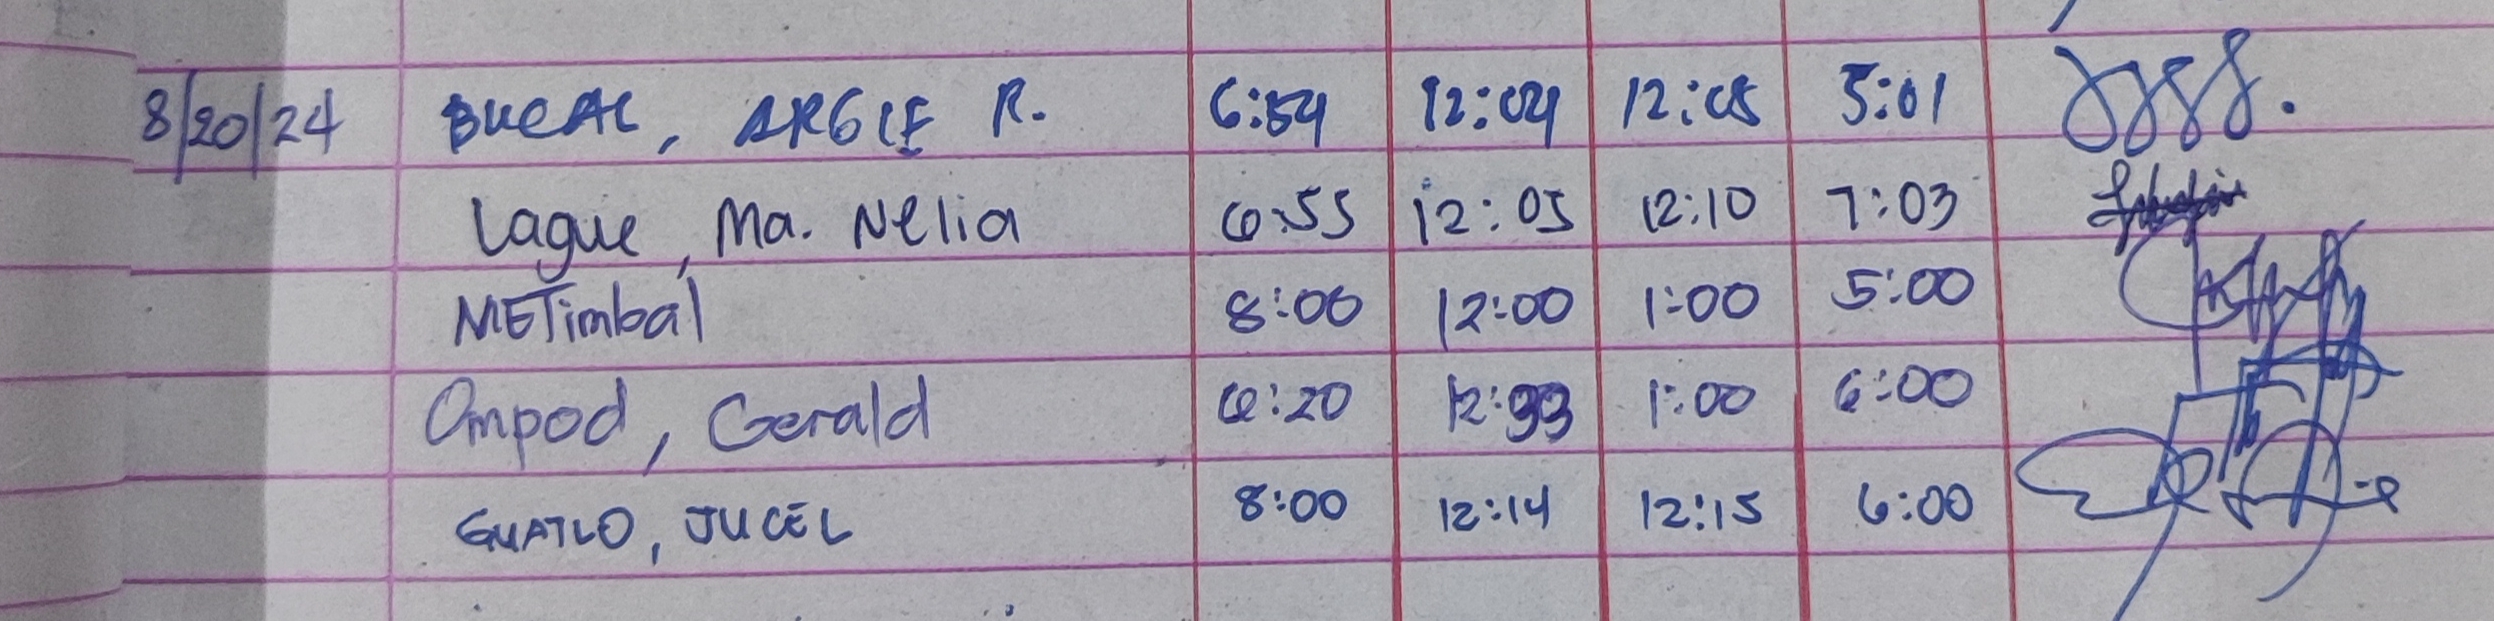 8/20/24 BUCAL, ARGIE R. 6:54 12:04 12:05 5:01
Lague, Ma. Nelia 6:55 12:05 12:10 7:03
METimbal 8:00 12:00 1:00 5:00
Ompod, Gerald 6:20 1:00 6:00
GUATLO, JUCEL 8:00 12:14 12:15 6:00